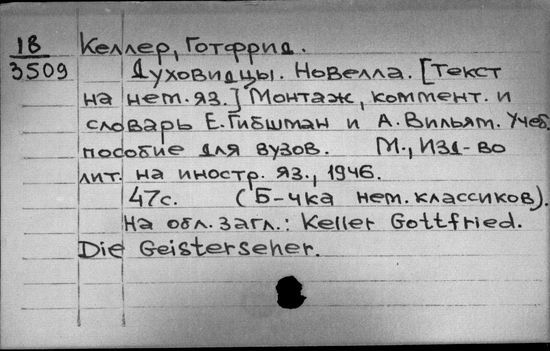 IB Келлер, Готфрид.
3509 Духовидцы. Новелла. [Текст
на нем. яз.] Монтаж, коммент. и
словарь Е. Гибшман и А. Вильям. Учеб.
пособие для вузов. М., Изд-во
лит. на иностр. яз., 1946.
47с. (Б-чка нем. классиков).
На обл. загл.: Keller Gottfried.
Die Geisterseher.